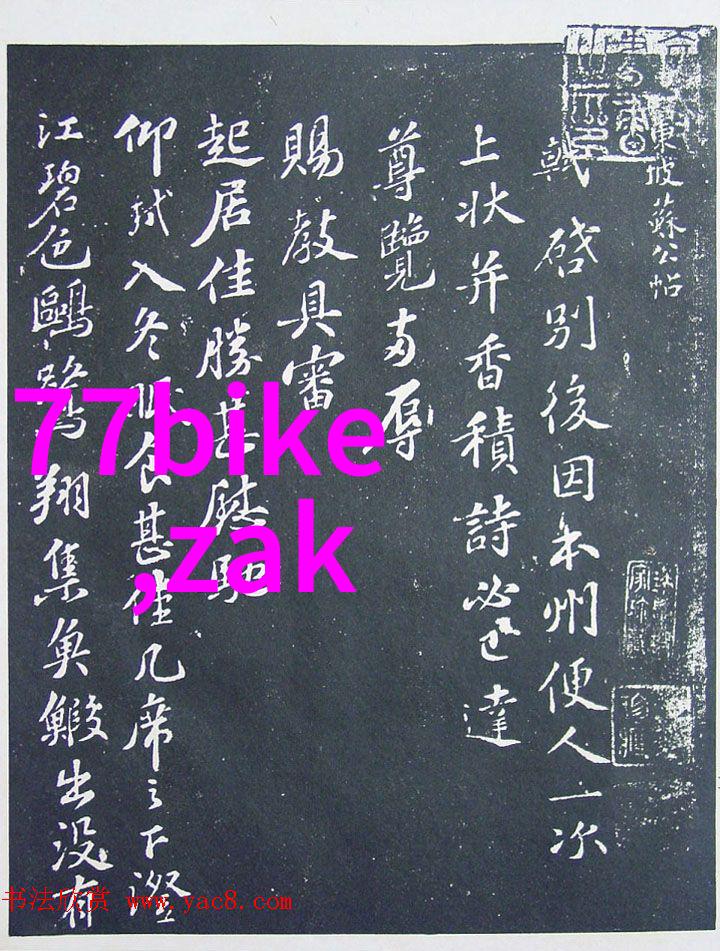 東坡蘇公帖
軾啓別後因本州便人一次
上狀并香積詩必已達
尊覽辱
賜教具審
起居佳勝甚慰馳
仰軾入冬眠食甚佳几席之下澄
江碧色鷗鷺翔集魚鰕出沒有
77bike
,zak
书法欣赏 www.yac8.com